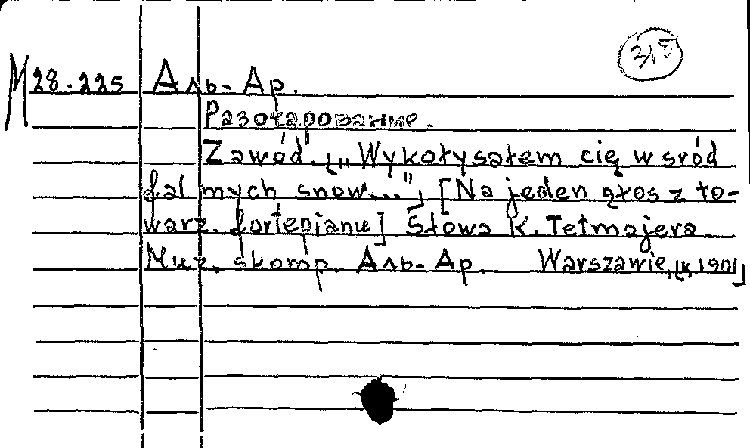 318
М 28-225 Алъ-Ар.
Разочарование.
Zawód. [„Wykołysałem cię wśród
fal mych snów..."] [Na jeden głos z to-
warz. fortepianu] Słowa K. Tetmajera
Muz. skomp. Алъ-Ар. Warszawie,